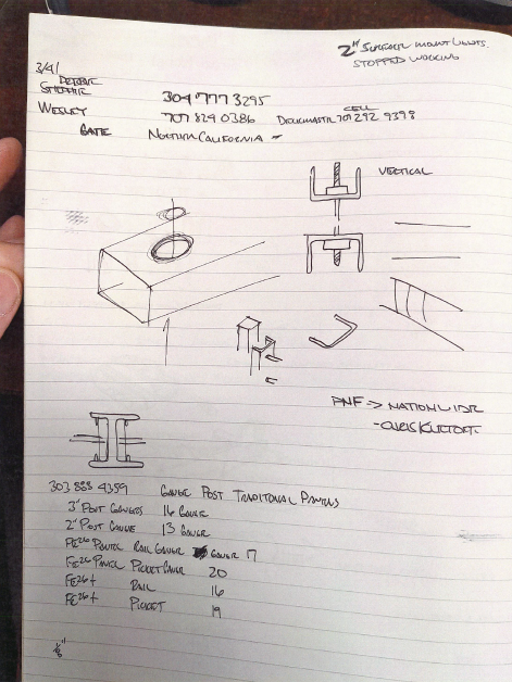 2" SURFACE MOUNT LIGHTS.
STOPPED WORKING
3/4/
304 777 3295
WESLEY 707 829 0386 DECKMASTR CELL 707 292 9398
GATE NORTHRN CALIFORNIA
VERTICAL
PNF →
303 888 4359 GAUGE POST TRADITIONAL PANELS
3" POST GAUGES 16 GAUGE
2" POST GAUGE 13 GAUGE
FE26 PANEL RAIL GAUGE GAUGE 17
FE26 PANEL PICKET GAUGE 20
FE26+ RAIL 16
FE26+ PICKET 19